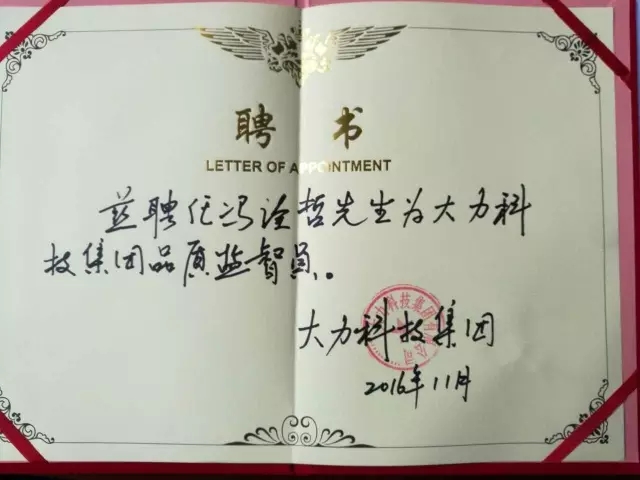 聘 书
LETTER OF APPOINTMENT
兹聘任冯诠哲先生为大力科
技集团品质监智员。
大力科技集团
2016年11月